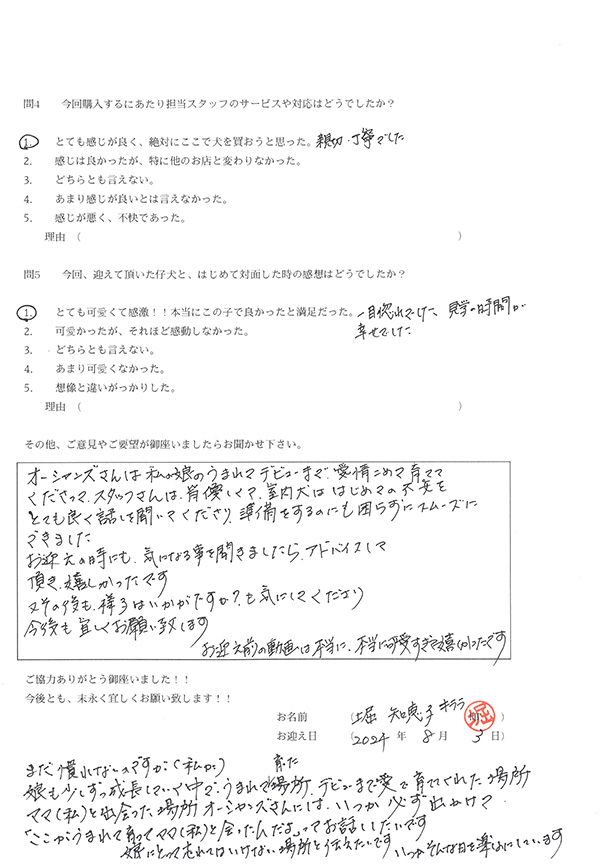 問4　今回購入するにあたり担当スタッフのサービスや対応はどうでしたか？
1.　とても感じが良く、絶対にここで犬を買おうと思った。親切・丁寧でした
2.　感じは良かったが、特に他のお店と変わりなかった。
3.　どちらとも言えない。
4.　あまり感じが良いとは言えなかった。
5.　感じが悪く、不快であった。
理由　(　　　　)
問5　今回、迎えて頂いた仔犬と、はじめて対面した時の感想はどうでしたか？
1.　とても可愛くて感激！！本当にこの子で良かったと満足だった。一目惚れでした、見学の時間が
幸せでした
2.　可愛かったが、それほど感動しなかった。
3.　どちらとも言えない。
4.　あまり可愛くなかった。
5.　想像と違いがっかりした。
理由　(　　　　)
その他、ご意見やご要望が御座いましたらお聞かせ下さい。
オーシャンズさんは私の娘のうまれてデビューまで、愛情こめて育てて
くださって、スタッフさんは、皆優しくて、室内犬ははじめての不安を
とても良く話しを聞いてくださり、準備をするのにも困らずにスムーズに
できました
お迎えの時にも、気になる事を聞きましたら、アドバイスして
頂き、嬉しかったです
又その後も、様子はいかがですか？も気にしてくださり
今後も宜しくお願い致します
お迎え前の動画は本当に、本当に可愛すぎて嬉しかったです
ご協力ありがとう御座いました！！
今後とも、末永く宜しくお願い致します！！
お名前　(堀 知恵子 キララ 堀)
お迎え日　(2024 年 8 月 3 日)
まだ慣れないのですが(私が)　育った
娘も少しずつ成長していく中で、うまれて場所、デビューまで愛で育ててくれた場所
ママ(私)と出会った場所 オーシャンズさんには、いつか必ず出かけて
「ここがうまれて育ってママ(私)と会ったんだよ」ってお話ししたいです
娘にとって忘れてはいけない場所と伝えたいです いつかそんな日を楽しみにしています